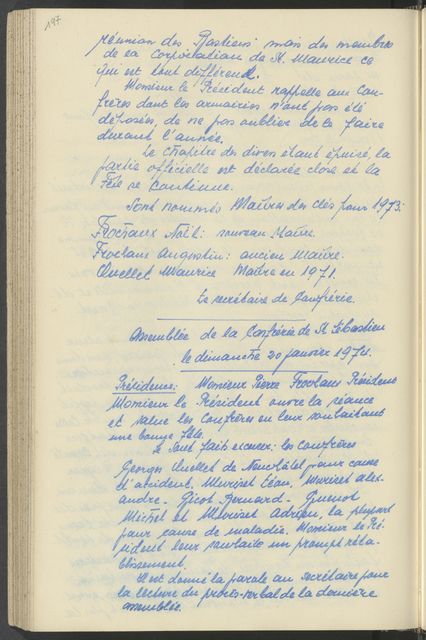 197
réunion des Bastians mais des membres
de la Corporation de St. Maurice ce
qui est tout différend.
Monsieur le Président rappelle aux Con-
frères dont les armoiries n'ont pas été
déposées, de ne pas oublier de le faire
durant l'année.
Le Chapitre des divers étant épuisé, la
partie officielle est déclarée close et la
Fête se continue.
Sont nommés Maîtres des clés pour 1973:
Frochaux Noël: nouveau Maître.
Frochaux Augustin: ancien Maître.
Quellet Maurice Maître en 1971.
Le secrétaire de Confrérie.
Assemblée de la Confrérie de St Sébastien
le dimanche 20 janvier 1974.
Présidence: Monsieur Pierre Frochaux Président
Monsieur le Président ouvre la séance
et salue les Confrères en leur souhaitant
une bonne fête.
Se sont fait excuser: les Confrères
Georges Quellet de Neuchâtel pour cause
d'accident, Muriset Léon, Muriset alex-
andre - Gicot Bernard - Guenot
Michel et Muriset Adrien, la plupart
pour cause de maladie. Monsieur le Pré-
sident leur souhaite un prompt réta-
blissement.
Il est donné la parole au secrétaire pour
la lecture du procès-verbal de la dernière
assemblée.